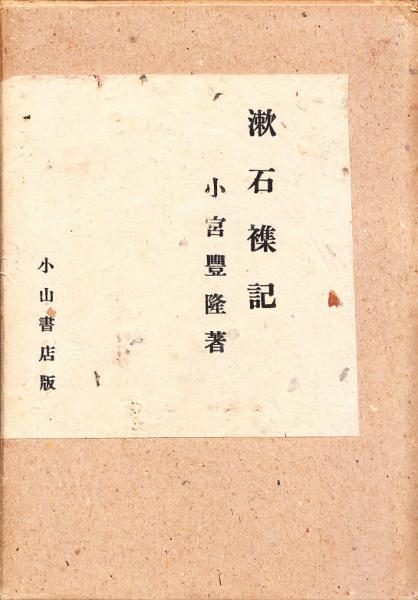 漱石襍記
小宮豐隆著
小山書店版